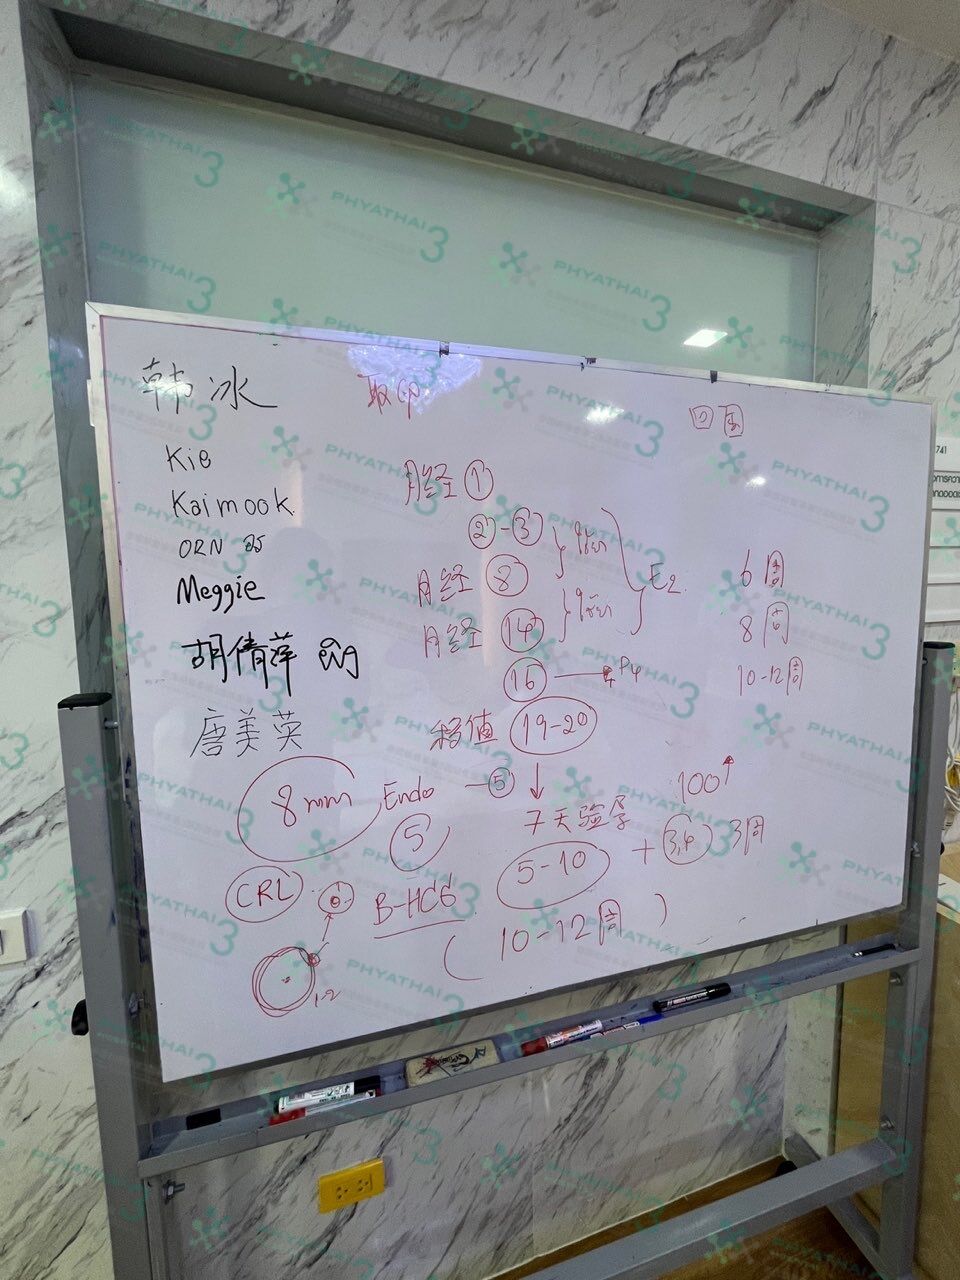 韩冰 取卵 回国
Kie
Kaimook 月经 ①
ORN ②-③
Meggie 月经 ⑧ E2 6周
胡倩萍 月经 ⑭ 8周
⑯ P4 10-12周
唐美英 移值 19-20
8mm Endo ⑤ 100↑
7天验孕
5 5-10 + 3,4 3周
CRL B-HCG
(10-12周)
1-2
741
PHYATHAI 3